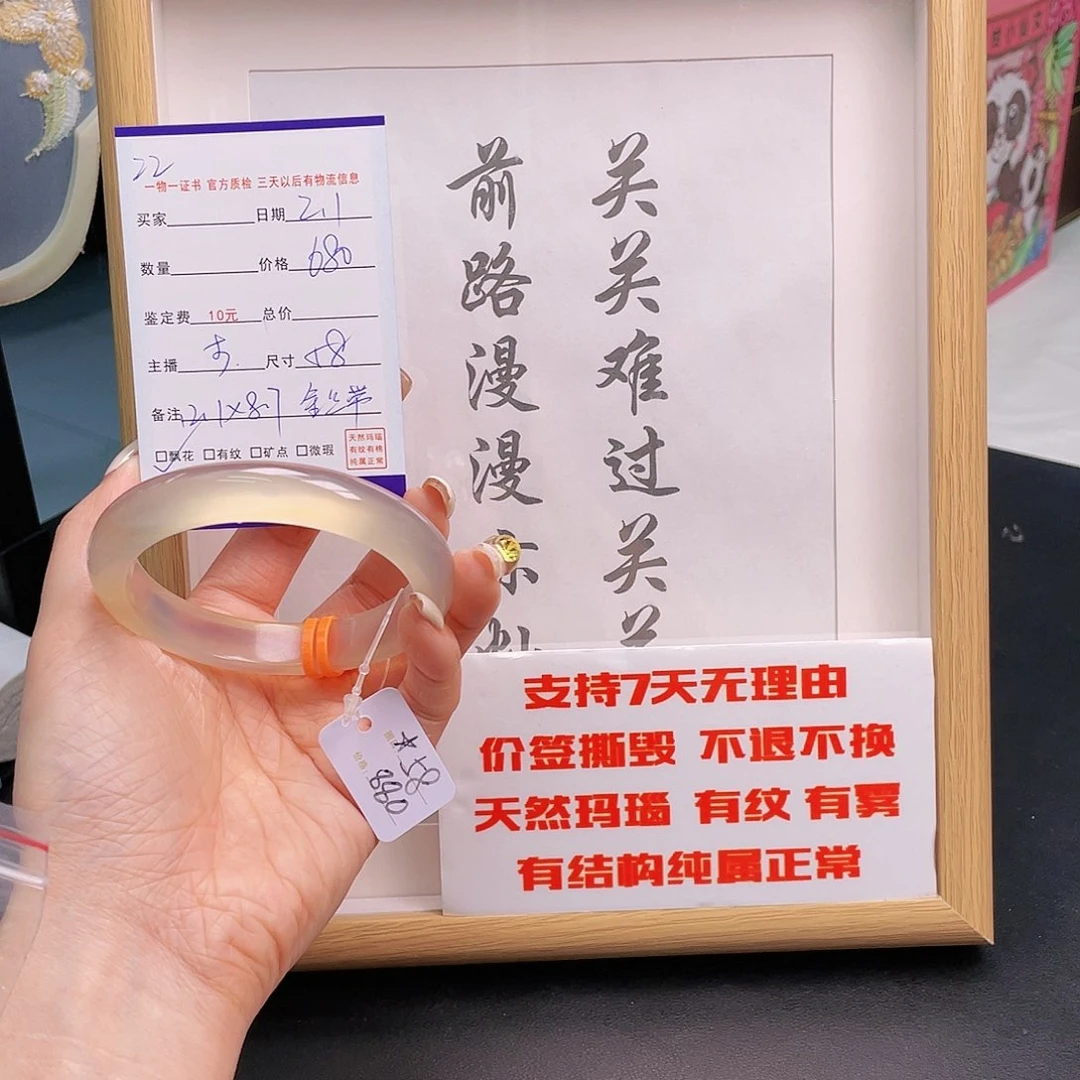 22
一物一证书 官方质检 三天以后有物流信息
买家 日期 2.1
数量 价格 680
鉴定费 10元 总价
主播 尺寸 58
备注 12.1×8.7 金丝带
□飘花 □有纹 □矿点 □微瑕
天然玛瑙
有纹有棉
纯属正常
关关难过关关
前路漫漫亦灿
58
8960
支持7天无理由
价签撕毁 不退不换
天然玛瑙 有纹 有雾
有结构纯属正常